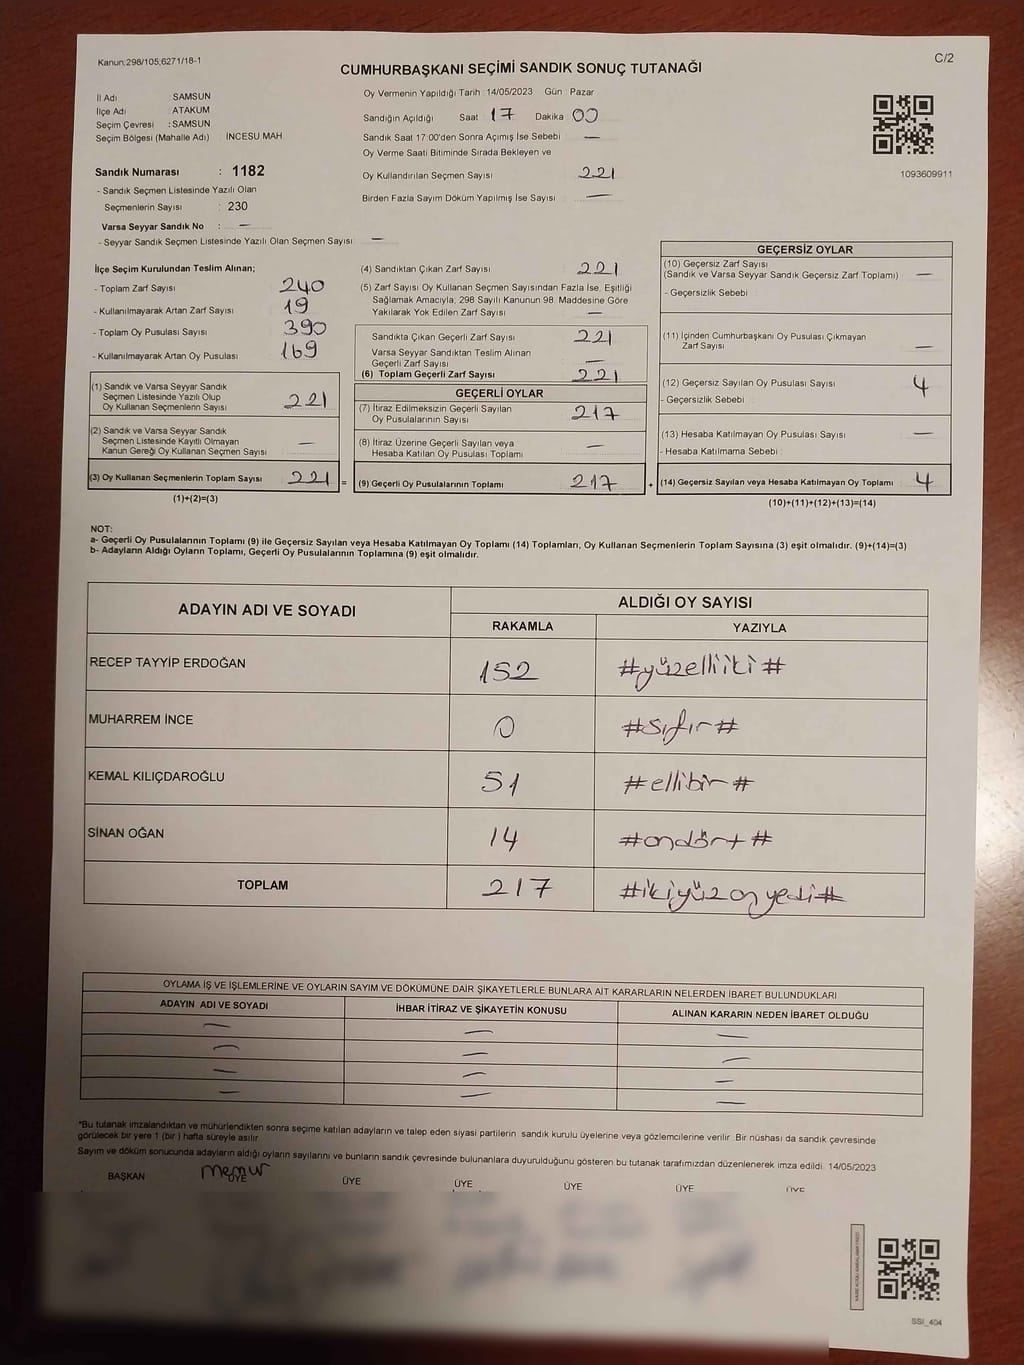 Kanun:298/105;6271/18-1
C/2
CUMHURBAŞKANI SEÇİMİ SANDIK SONUÇ TUTANAĞI
İl Adı : SAMSUN
İlçe Adı : ATAKUM
Seçim Çevresi : SAMSUN
Seçim Bölgesi (Mahalle Adı) : İNCESU MAH.
Sandık Numarası : 1182
- Sandık Seçmen Listesinde Yazılı Olan
Seçmenlerin Sayısı : 230
Varsa Seyyar Sandık No : —
- Seyyar Sandık Seçmen Listesinde Yazılı Olan Seçmen Sayısı : —
Oy Vermenin Yapıldığı Tarih :14/05/2023 Gün : Pazar
Sandığın Açıldığı Saat 17 Dakika 00
Sandık Saat 17:00'den Sonra Açımış İse Sebebi : —
Oy Verme Saati Bitiminde Sırada Bekleyen ve
Oy Kullandırılan Seçmen Sayısı : 221
Birden Fazla Sayım Döküm Yapılmış İse Sayısı : —
1093609911
İlçe Seçim Kurulundan Teslim Alınan;
- Toplam Zarf Sayısı : 240
- Kullanılmayarak Artan Zarf Sayısı : 19
- Toplam Oy Pusulası Sayısı : 390
- Kullanılmayarak Artan Oy Pusulası : 169
(1) Sandık ve Varsa Seyyar Sandık
Seçmen Listesinde Yazılı Olup
Oy Kullanan Seçmenlerin Sayısı : 221
(2) Sandık ve Varsa Seyyar Sandık
Seçmen Listesinde Kayıtlı Olmayan
Kanun Gereği Oy Kullanan Seçmen Sayısı : —
(3) Oy Kullanan Seçmenlerin Toplam Sayısı : 221 =
(1)+(2)=(3)
(4) Sandıktan Çıkan Zarf Sayısı : 221
(5) Zarf Sayısı Oy Kullanan Seçmen Sayısından Fazla İse, Eşitliği
Sağlamak Amacıyla, 298 Sayılı Kanunun 98. Maddesine Göre
Yakılarak Yok Edilen Zarf Sayısı : —
Sandıkta Çıkan Geçerli Zarf Sayısı : 221
Varsa Seyyar Sandıktan Teslim Alınan
Geçerli Zarf Sayısı : —
(6) Toplam Geçerli Zarf Sayısı : 221
GEÇERLİ OYLAR
(7) İtiraz Edilmeksizin Geçerli Sayılan
Oy Pusulalarının Sayısı : 217
(8) İtiraz Üzerine Geçerli Sayılan veya
Hesaba Katılan Oy Pusulası Toplamı : —
(9) Geçerli Oy Pusulalarının Toplamı : 217 +
GEÇERSİZ OYLAR
(10) Geçersiz Zarf Sayısı
(Sandık ve Varsa Seyyar Sandık Geçersiz Zarf Toplamı) : —
- Geçersizlik Sebebi :
(11) İçinden Cumhurbaşkanı Oy Pusulası Çıkmayan
Zarf Sayısı : —
(12) Geçersiz Sayılan Oy Pusulası Sayısı : 4
- Geçersizlik Sebebi :
(13) Hesaba Katılmayan Oy Pusulası Sayısı : —
- Hesaba Katılmama Sebebi :
(14) Geçersiz Sayılan veya Hesaba Katılmayan Oy Toplamı : 4
(10)+(11)+(12)+(13)=(14)
NOT:
a- Geçerli Oy Pusulalarının Toplamı (9) ile Geçersiz Sayılan veya Hesaba Katılmayan Oy Toplamı (14) Toplamları, Oy Kullanan Seçmenlerin Toplam Sayısına (3) eşit olmalıdır. (9)+(14)=(3)
b- Adayların Aldığı Oyların Toplamı, Geçerli Oy Pusulalarının Toplamına (9) eşit olmalıdır.
ADAYIN ADI VE SOYADI ALDIĞI OY SAYISI
RAKAMLA YAZIYLA
RECEP TAYYİP ERDOĞAN 152 #yüzelliiki#
MUHARREM İNCE 0 #sıfır#
KEMAL KILIÇDAROĞLU 51 #ellibir#
SİNAN OĞAN 14 #ondört#
TOPLAM 217 #ikiyüz on yedi#
OYLAMA İŞ VE İŞLEMLERİNE VE OYLARIN SAYIM VE DÖKÜMÜNE DAİR ŞİKAYETLERLE BUNLARA AİT KARARLARIN NELERDEN İBARET BULUNDUKLARI
ADAYIN ADI VE SOYADI İHBAR İTİRAZ VE ŞİKAYETİN KONUSU ALINAN KARARIN NEDEN İBARET OLDUĞU
— — —
— — —
— — —
— — —
*Bu tutanak imzalandıktan ve mühürlendikten sonra seçime katılan adayların ve talep eden siyasi partilerin sandık kurulu üyelerine veya gözlemcilerine verilir. Bir nüshası da sandık çevresinde
görülecek bir yere 1 (bir ) hafta süreyle asılır.
Sayım ve döküm sonucunda adayların aldığı oyların sayılarını ve bunların sandık çevresinde bulunanlara duyurulduğunu gösteren bu tutanak tarafımızdan düzenlenerek imza edildi. 14/05/2023
BAŞKAN memur ÜYE ÜYE ÜYE ÜYE ÜYE ÜYE
SSI_404